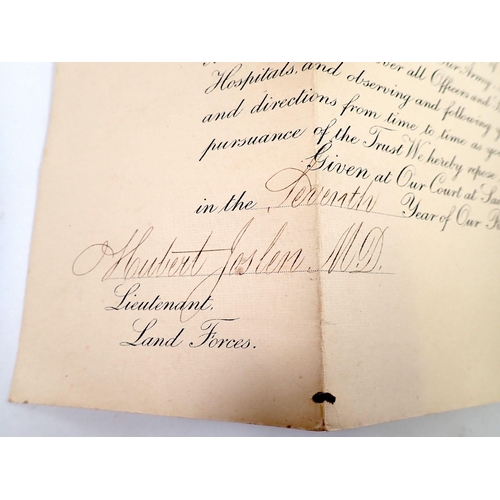 our Army
Hospitals, and over all Officers and
and observing and following
and directions from time to time as
pursuance of the Trust We hereby repose
Given at Our Court at Sai
in the Seventh Year of Our R
Hubert Joslen M.D.
Lieutenant.
Land Forces.